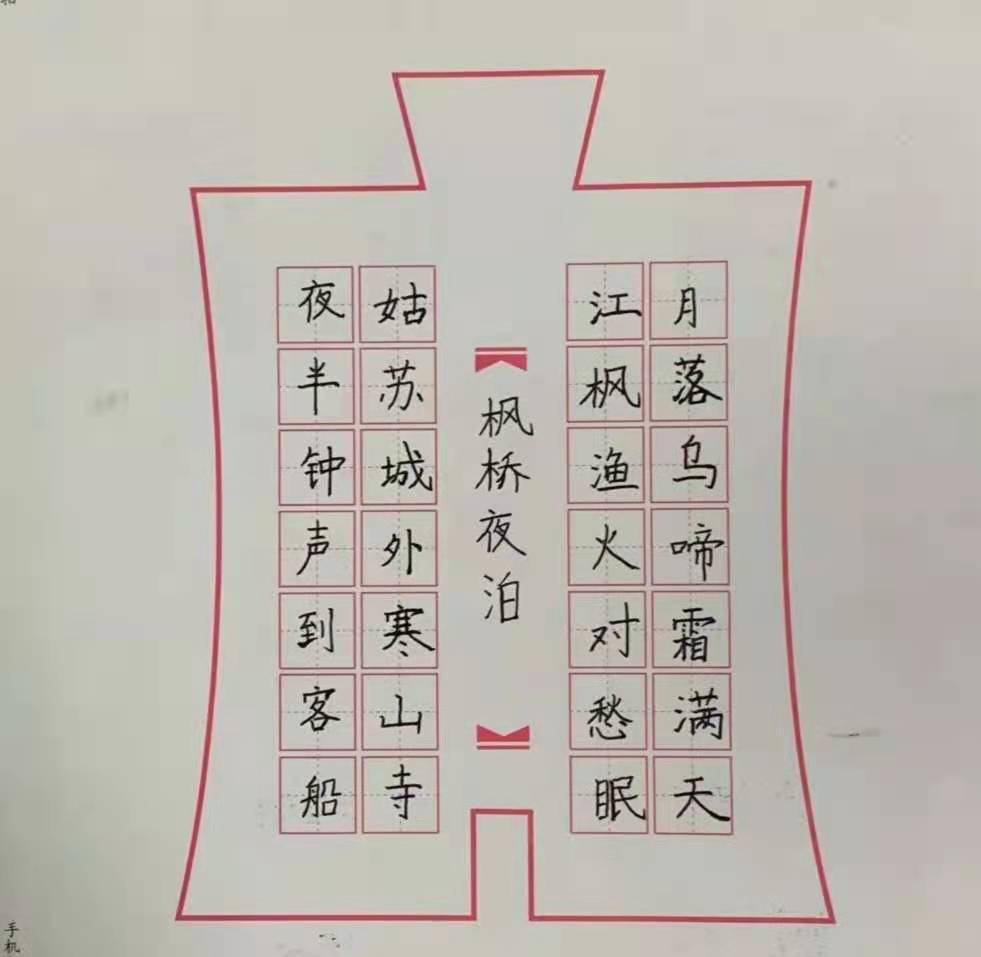 月落乌啼霜满天
江枫渔火对愁眠
枫桥夜泊
姑苏城外寒山寺
夜半钟声到客船
手机